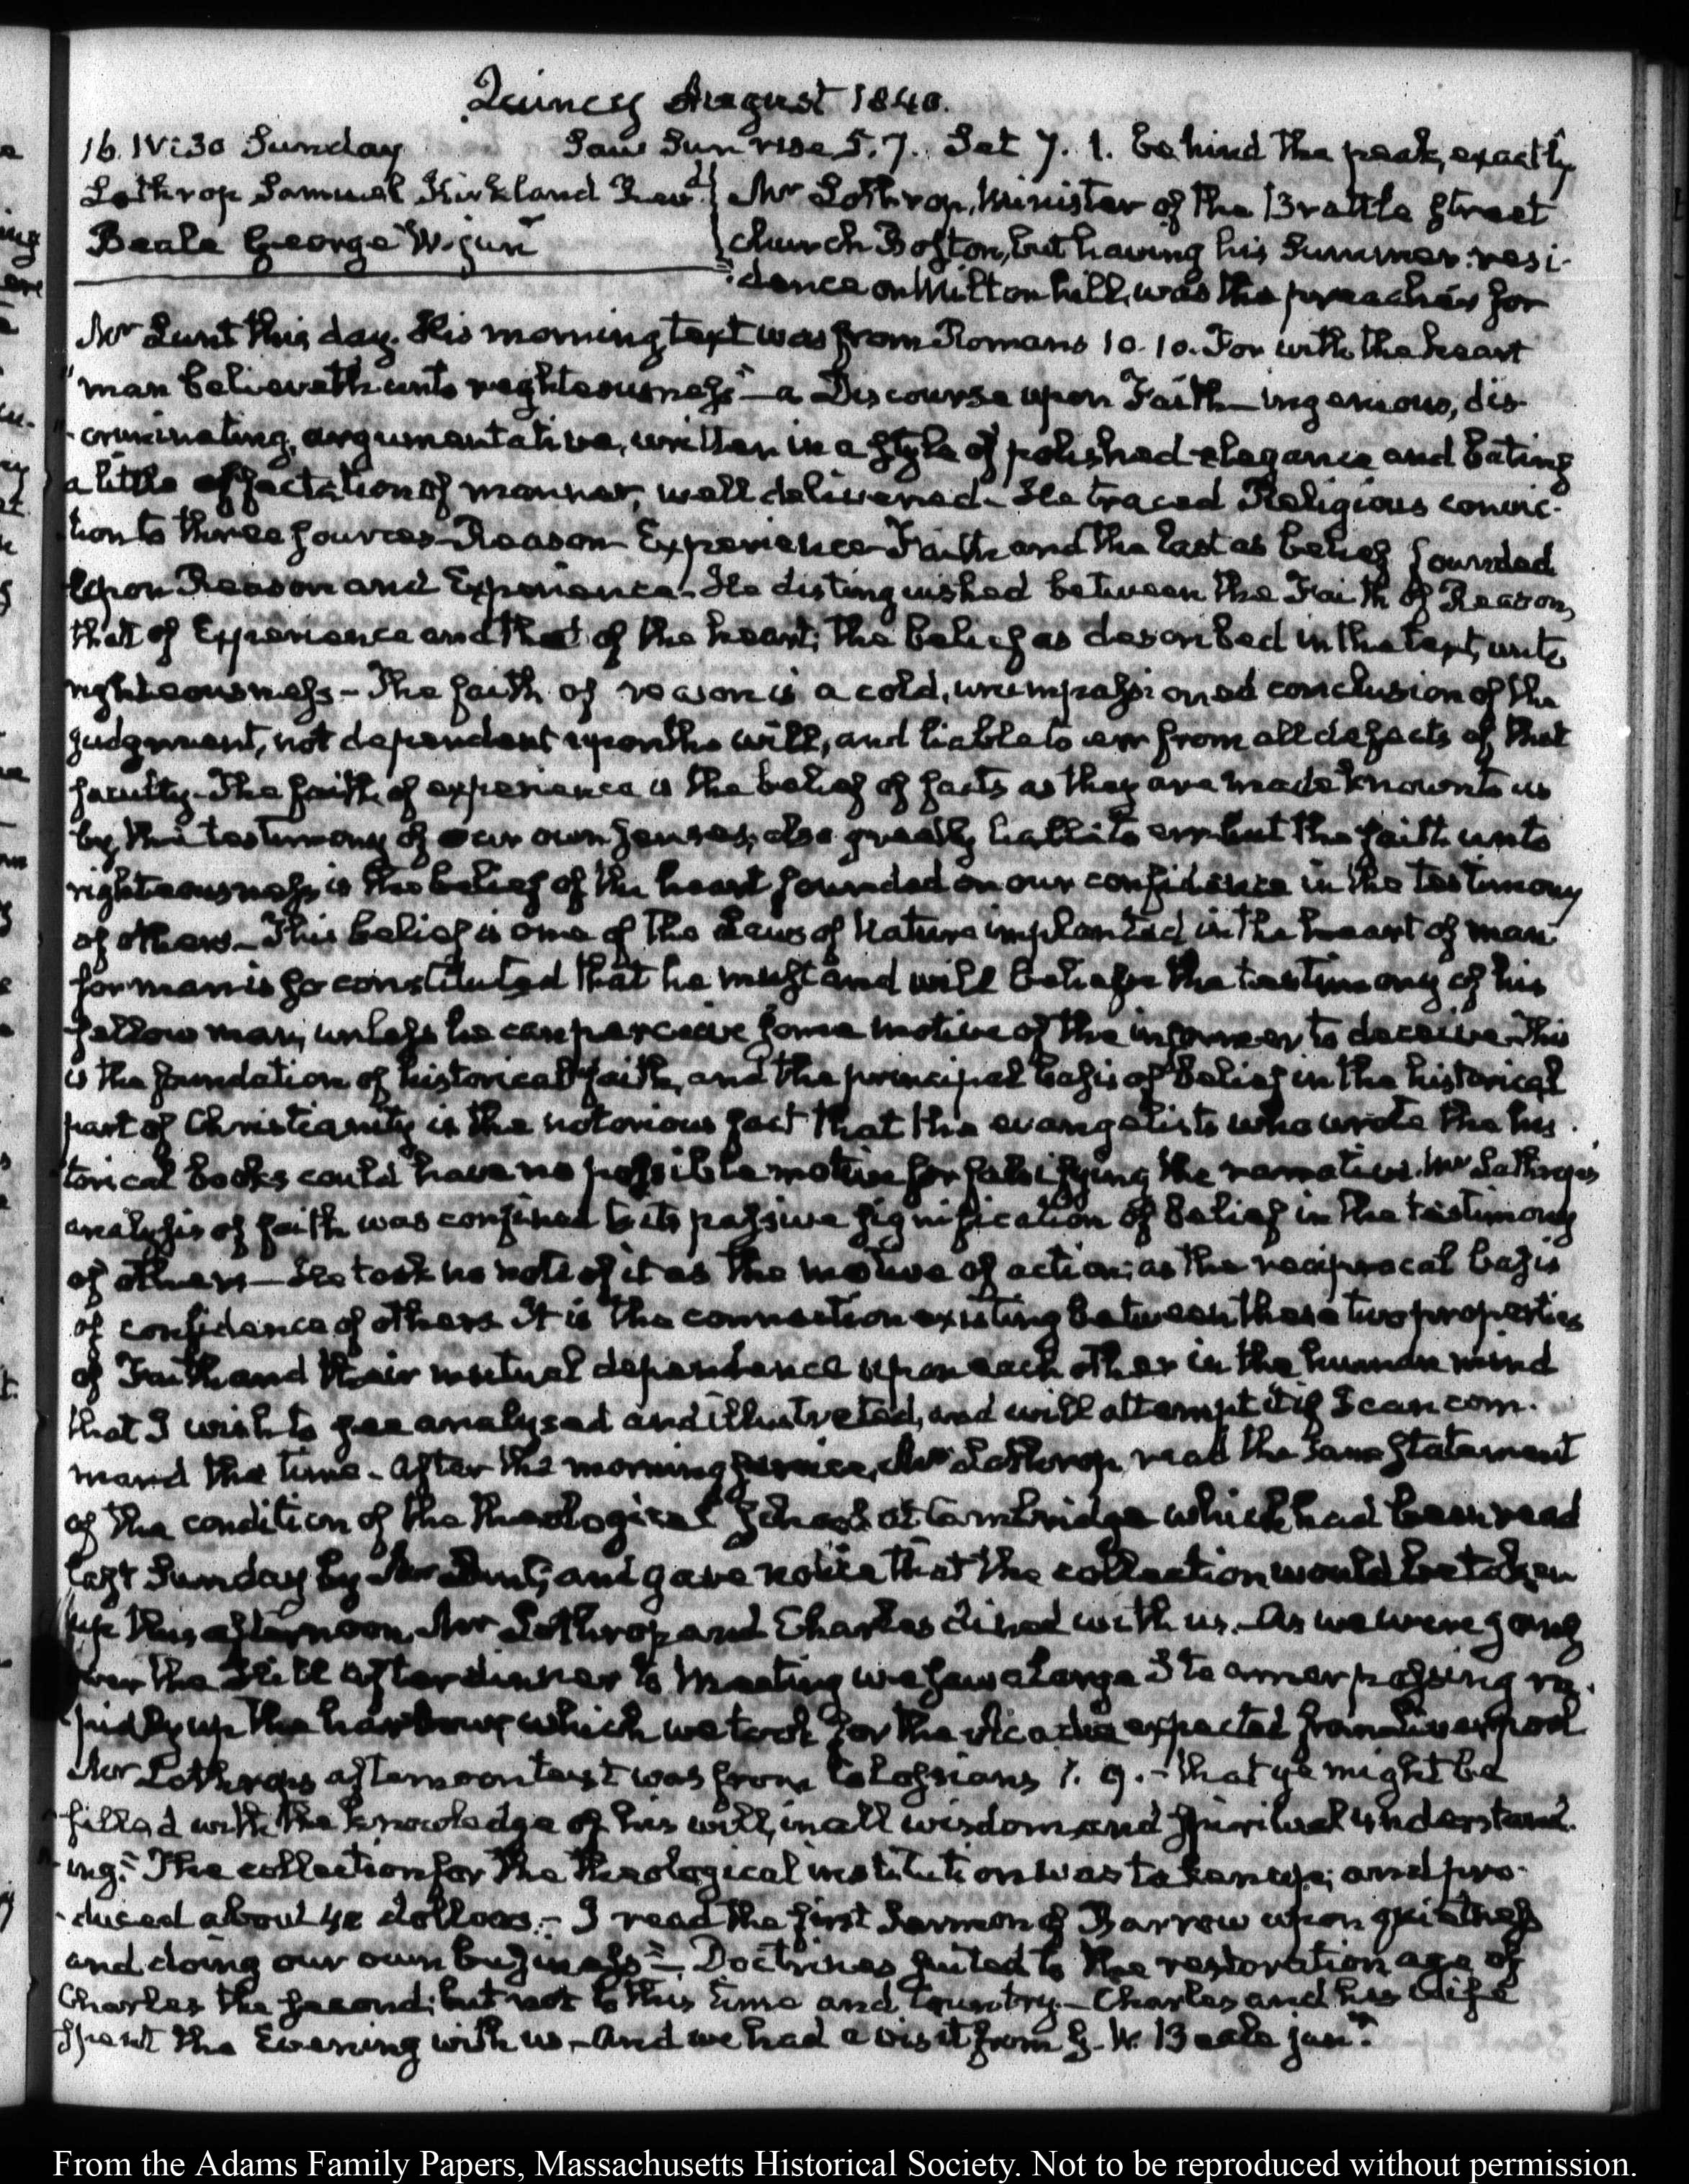 Quincy August 1840.
16. IV:30 Sunday Saw Sun rise 5.7. Set 7. 1. behind the peak, exactly
Lothrop Samuel Kirkland Revd. Mr Lothrop, Minister of the Brattle Street
Beale George W. junr church Boston, but having his Summer resi-
dence on Milton hill, was the preacher for
Mr Lunt this day. His morning text was from Romans 10.10. For with the heart
"man believeth unto righteousness" — a Discourse upon Faith — ingenious, dis-
criminating, argumentative, written in a style of polished elegance and bating
a little affectation of manner, well delivered — He traced Religious convic-
tion to three sources Reason Experience Faith and the last as belief founded
upon Reason and Experience — He distinguished between the Faith of Reason,
that of Experience and that of the heart; the belief as described in the text, unto
righteousness — The faith of reason is a cold, unimpassioned conclusion of the
judgment, not dependent upon the will, and liable to err from all defects of that
faculty. The faith of experience is the belief of facts as they are made known to us
by the testimony of our own senses, also greatly liable to err but the faith unto
righteousness is the belief of the heart founded on our confidence in the testimony
of others — This belief is one of the Laws of Nature implanted in the heart of man
for man is so constituted that he must and will believe the testimony of his
fellow man, unless he can perceive some motive of the informer to deceive. This
is the foundation of historical faith, and the principal basis of Belief in the historical
part of Christianity is the notorious fact that the evangelists who wrote the his-
torical books could have no possible motive for falsifying the narrative. Mr Lothrop's
analysis of faith was confined to its passive signification of Belief in the testimony
of others — He took no note of it as the motive of action; as the reciprocal basis
of confidence of others. It is the connection existing between these two properties
of Faith and their mutual dependence upon each other in the human mind
that I wish to see analysed and illustrated, and will attempt it if I can com-
mand the time — After the morning service, Mr Lothrop read the same statement
of the condition of the theological School at Cambridge which had been read
last Sunday by Mr Lunt, and gave notice that the collection would be taken
up this afternoon. Mr Lothrop and Charles dined with us. As we were going
over the Hill after dinner to Meeting we saw a large Steamer passing ra-
pidly up the harbour, which we took for the Acadia expected from Liverpool
Mr Lothrop's afternoon text was from Colossians 1. 9. — "that ye might be
filled with the knowledge of his will, in all wisdom and spiritual understand-
ing." The collection for the theological institution was taken up; and pro-
duced about 40 dollars. — I read the first Sermon of Barrow upon quietness
and doing our own business — Doctrines suited to the restoration age of
Charles the second; but not to this time and Country — Charles and his Wife
spent the Evening with us, — and we had a visit from G. W. Beale junr.
From the Adams Family Papers, Massachusetts Historical Society. Not to be reproduced without permission.